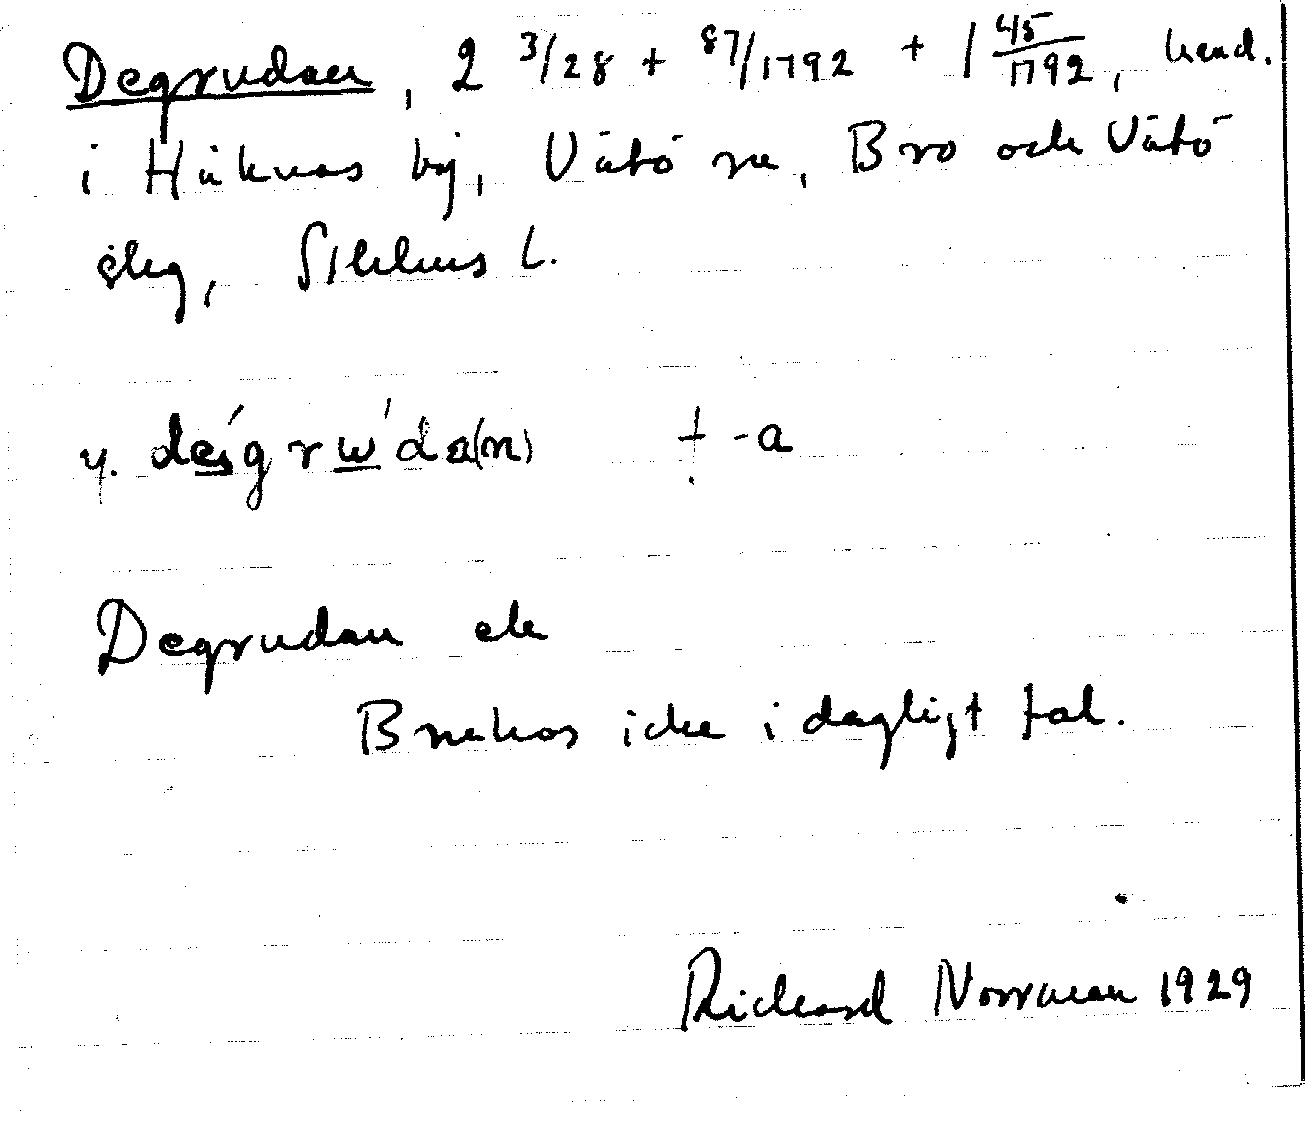 Degrudan, 2 3/28 + 87/1792 + 1 45/1792, hemd.
i Håknäs by, Vätö sn, Bro och Vätö
slg, Sthlms l.
y. degrwda(n) † -a
Degrudan ek
Brukas icke i dagligt tal.
Rickard Norrman 1929